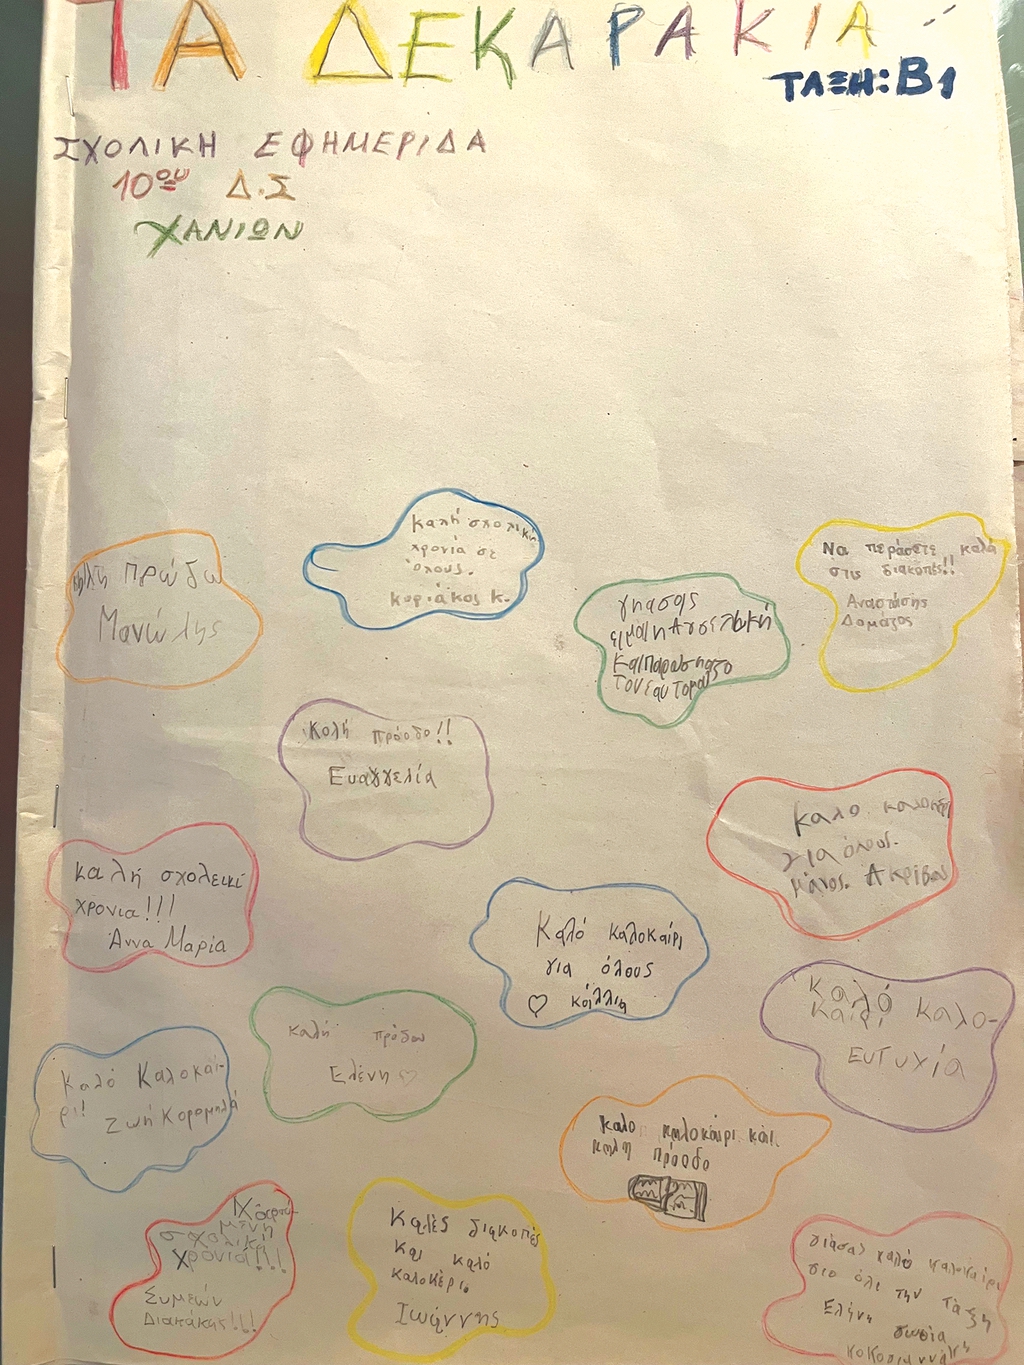 ΤΑ ΔΕΚΑΡΑΚΙΑ
ΤΑΞΗ: Β1
ΣΧΟΛΙΚΗ ΕΦΗΜΕΡΙΔΑ
10ου Δ.Σ
ΧΑΝΙΩΝ
καλή σχολική
χρονιά σε
όλους.
κυριάκος κ.
Να περάσετε καλά
στις διακοπές!!
Αναστάσης
Δαμάζος
πρώδω
Μανώλης
γιασας
είμαι η Αγγελική
και παρουσιαζο
τον εαυτομου
Καλή πρόοδο!!
Ευαγγελία
καλο καλοκαίρι
για όλους.
μάνος. Ακρίβου
καλή σχολεική
χρονια!!!
Άννα Μαρία
Καλό καλοκαίρι
για όλους
♡ κάλλια
καλό
καίρι καλο-
ΕυΤυχία
καλή πρόδω
Ελένη ♡
Καλό Καλοκαί-
ρι!
Ζωή Κορομηλά
καλο καλοκαίρι και
καλη πρόοδο
Χαρού-
μενη
σχολική
χρονιά!!!
Συμεών
Διακάκης!!!
Καλές διακοπές
και καλό
καλοκέριο
Ιωάννης
γιάσας καλό καλοκαίρι
σιο όλι την τάξη
Ελένη
σωσία